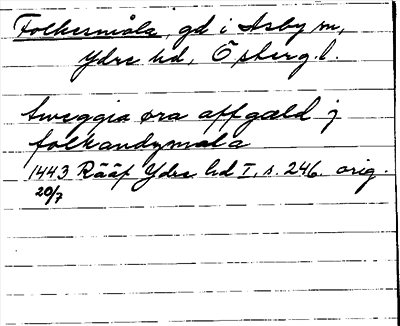 Folkesmåla, gd i Asby sn,
Ydre hd, Östergl.
tweggia øra affgæld j
folkandymala
1443 Rääf Ydre hd I, s. 246. orig.
20/7